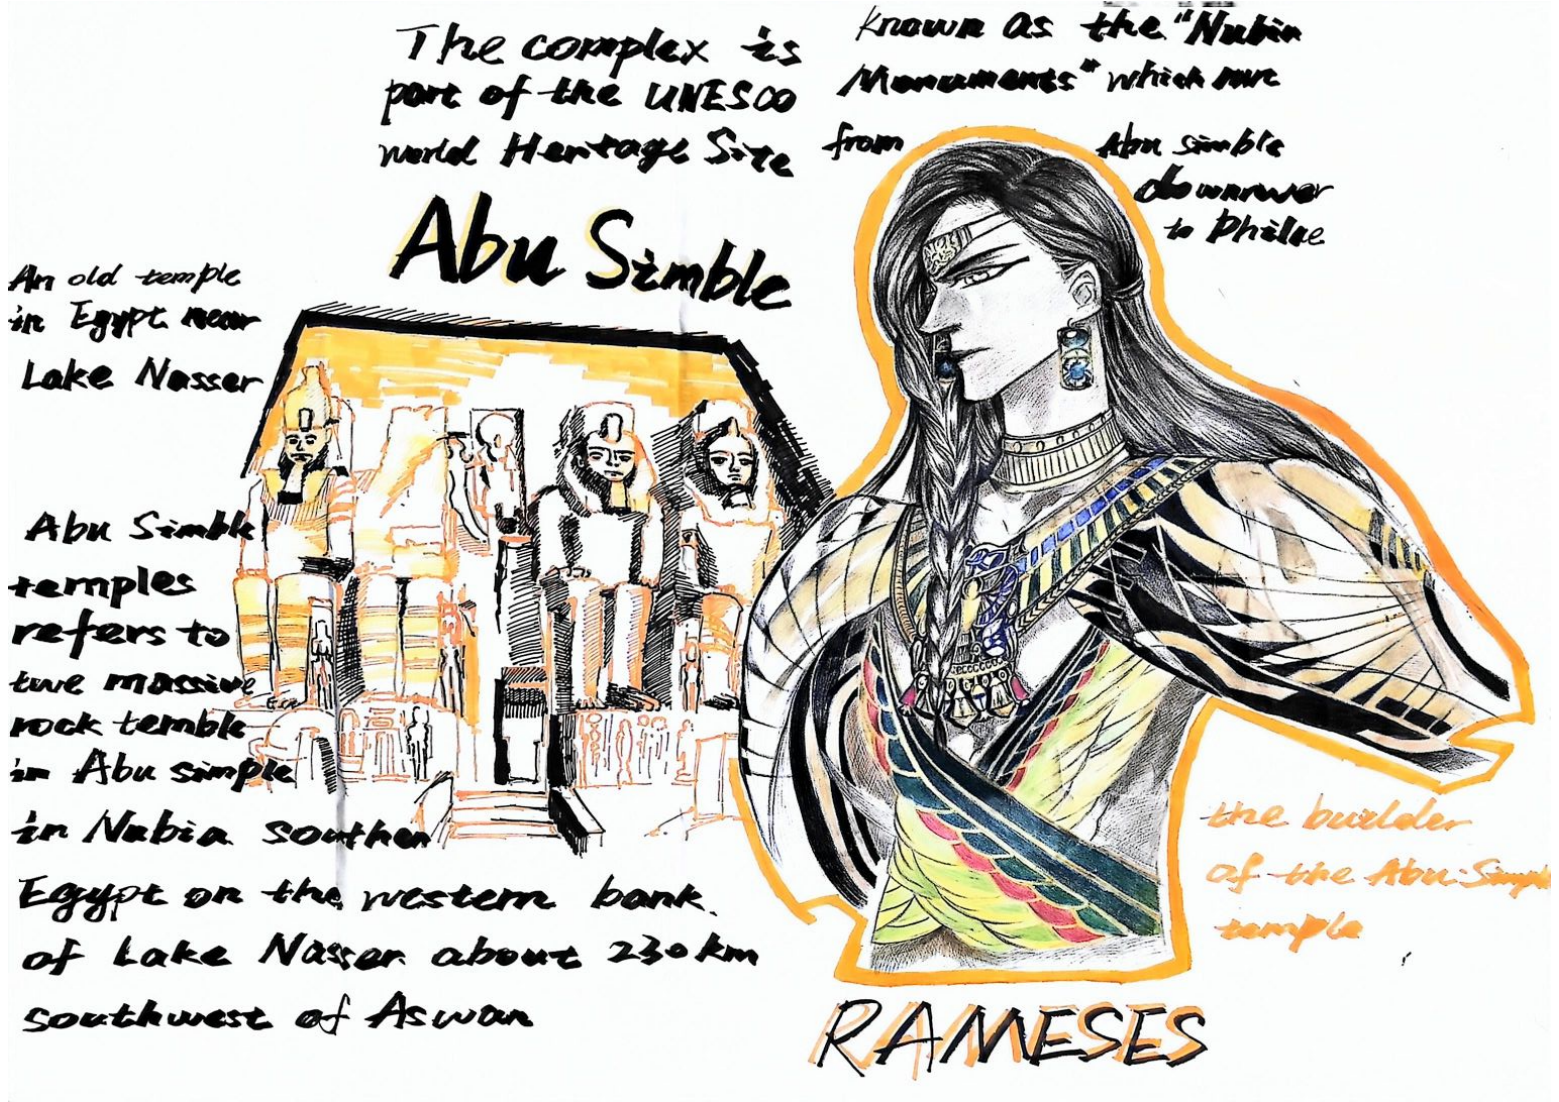 The complex is
part of the UNESCO
world Heritage Site
known as the "Nubin
Monuments" which run
from Abu simble
downrwer
to Philae
Abu Simble
An old temple
in Egypt near
Lake Nasser
Abu Simble
temples
refers to
twe massive
rock temble
in Abu simple
in Nubia southen
Egypt on the western bank.
of Lake Nasser about 230km
southwest of Aswan
the builder
of the Abu-Simple
temple
RAMESES